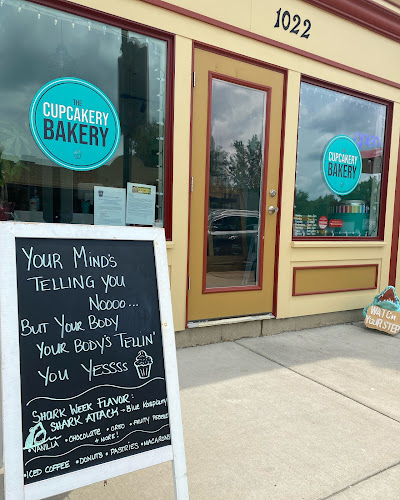 1022
THE
CUPCAKERY
BAKERY
THE
CUPCAKERY
BAKERY
YOUR MIND'S
TELLING YOU
NOOOO...
BUT YOUR BODY
YOUR BODY'S TELLIN'
YOU YESSSS
SHARK WEEK FLAVOR:
SHARK ATTACK → Blue Raspberry
•VANILLA •CHOCOLATE •OREO •FRUITY PEBBLE
+ MORE!
•ICED COFFEE •DONUTS •PASTRIES •MACARONS
WATCH
YOUR STEP